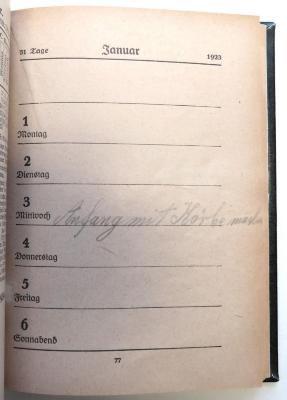 31 Tage Januar 1923
1
Montag
2
Dienstag
3
Mittwoch Anfang mit Körbe machen
4
Donnerstag
5
Freitag
6
Sonnabend
77